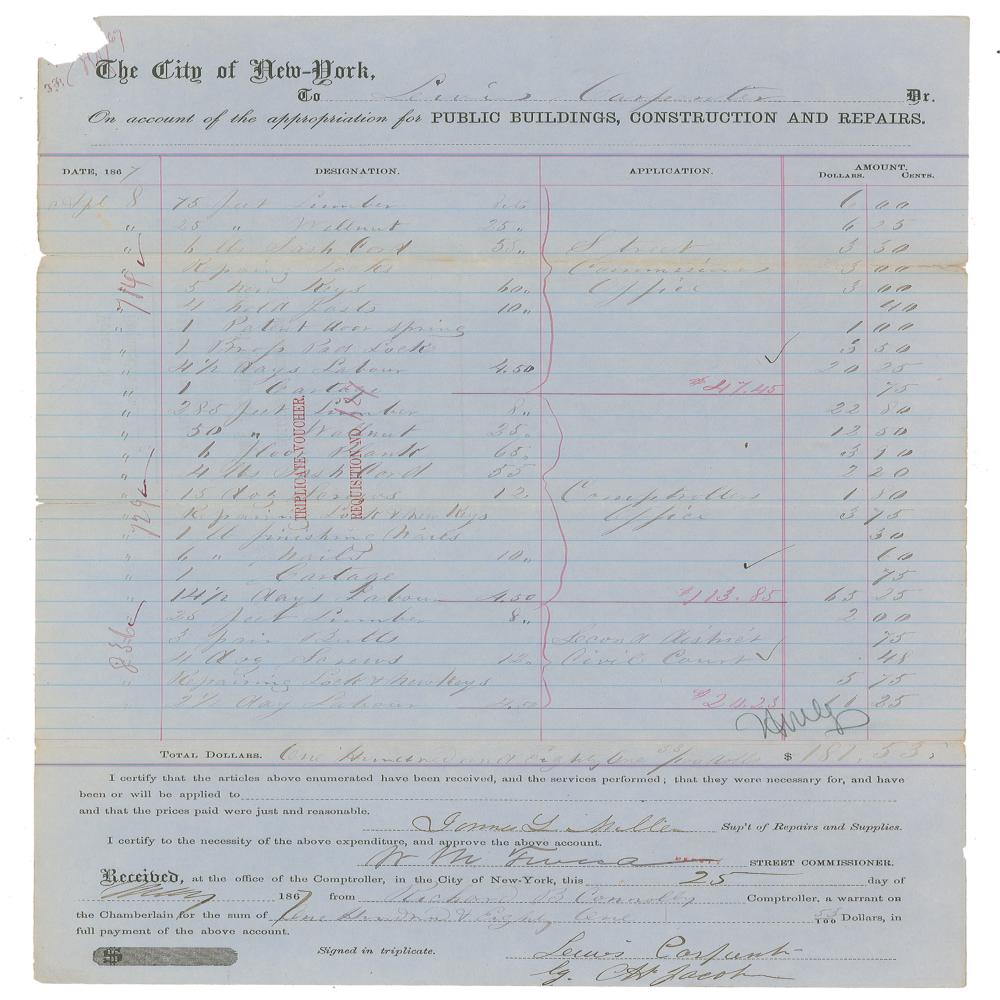 The City of New-York,
To Lewis Carpenter Dr.
On account of the appropriation for PUBLIC BUILDINGS, CONSTRUCTION AND REPAIRS.
DATE, 1867 DESIGNATION. APPLICATION. AMOUNT.
DOLLARS. CENTS.
8 75 feet Lumber 6 00
" 25 " Wallnut 25" 6 25
" 6 lbs Sash Cord 55" Street 3 30
" Repairing Locks Commissioners 3 00
" 5 New Keys 60" Office 3 00
" 4 10" 40
" 1 Patent door spring 1 00
" 1 Lock 3 50
" 4 1/2 days Labour 4.50 20 25
" 1 Cartage $47.45 75
" 285 feet Lumber 8" 22 80
" 50 " Wallnut 25" 12 50
" 6 floor Plank 65" 3 10
" 4 lbs Sash Cord 55 2 20
" 15 doz Screws 12" Comptrollers 1 80
" Repairing Lock & new Keys Office 3 75
" 1 lb finishing Nails 30
" 6 " Nails 10" 60
" 1 Cartage 75
" 14 1/2 days Labour 4.50 $113.85 65 25
" 25 feet Lumber 8" 2 00
" 3 pair Butts Second District 75
" 4 doz Screws 12" Civil Court 48
" Repairing Lock & new Keys 5 75
" 2 1/2 day Labour 4.50 $20.23 11 25
714
729
836
TRIPLICATE VOUCHER.
REQUISITION NO.
TOTAL DOLLARS. One Hundred and Eighty One 53/100 Dolls $ 181.53
I certify that the articles above enumerated have been received, and the services performed; that they were necessary for, and have
been or will be applied to
and that the prices paid were just and reasonable.
James L Miller Sup't of Repairs and Supplies.
I certify to the necessity of the above expenditure, and approve the above account.
W M Tweed STREET COMMISSIONER.
Received, at the office of the Comptroller, in the City of New-York, this 25 day of
May 1867 from Richard B Connolly Comptroller, a warrant on
the Chamberlain for the sum of One Hundred & Eighty One 53/100 Dollars, in
full payment of the above account.
Signed in triplicate. Lewis Carpenter